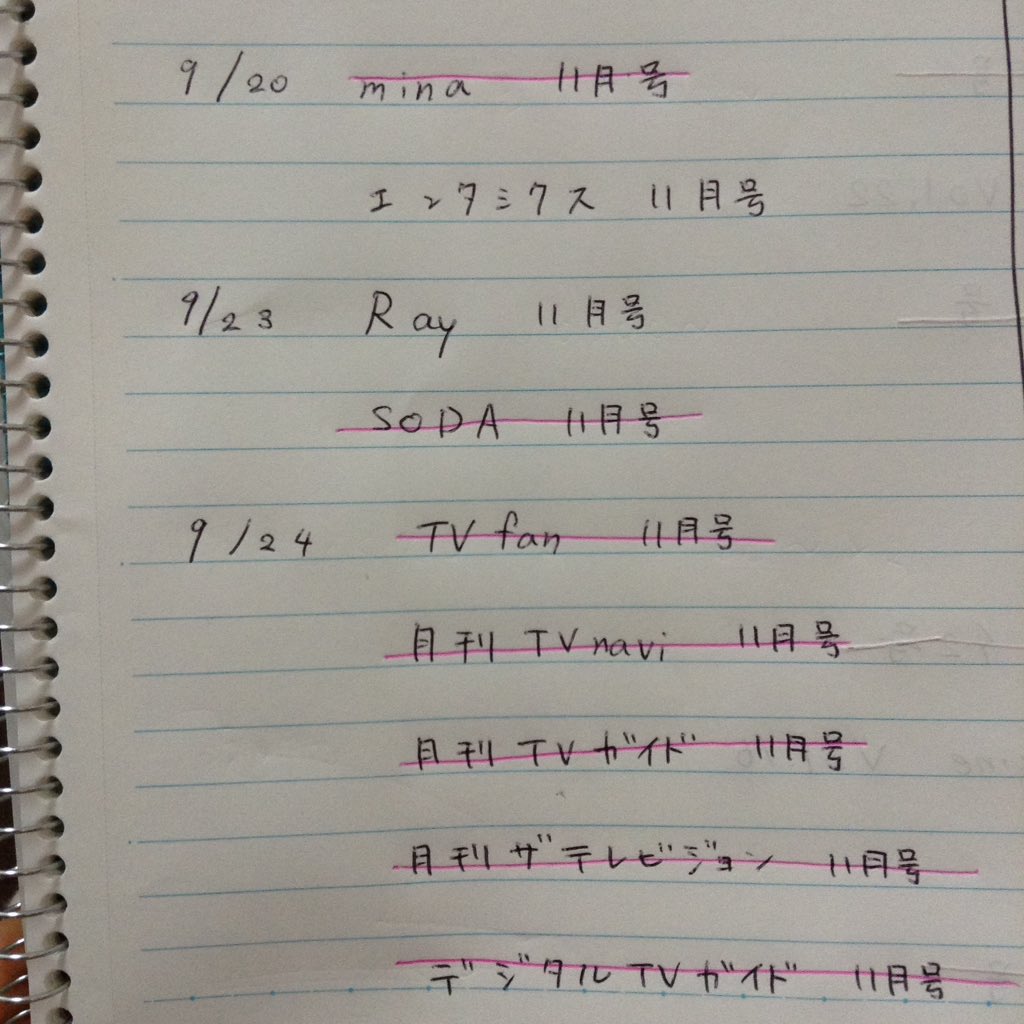 9/20 mina 11月号
エンタミクス 11月号
9/23 Ray 11月号
SODA 11月号
9/24 TV fan 11月号
月刊 TV navi 11月号
月刊 TV ガイド 11月号
月刊 ザテレビジョン 11月号
デジタル TV ガイド 11月号